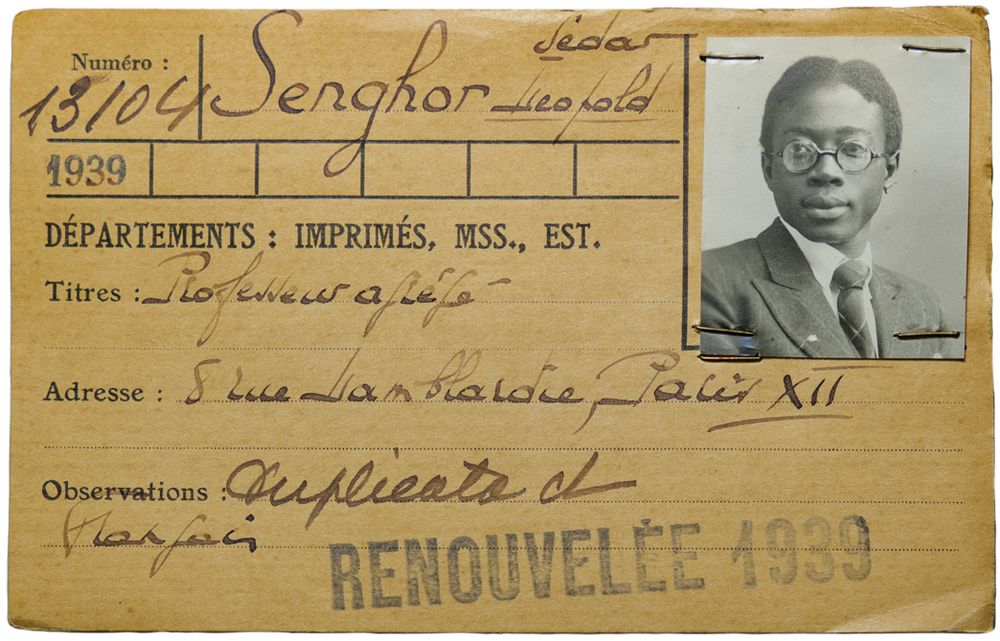 Numéro :
13104
Senghor Sédar
Léopold
1939
DÉPARTEMENTS : IMPRIMÉS, MSS., EST.
Titres : Professeur agrégé
Adresse : 8 rue Lamblardie, Paris XII
Observations : Duplicata
Français
RENOUVELÉE 1939